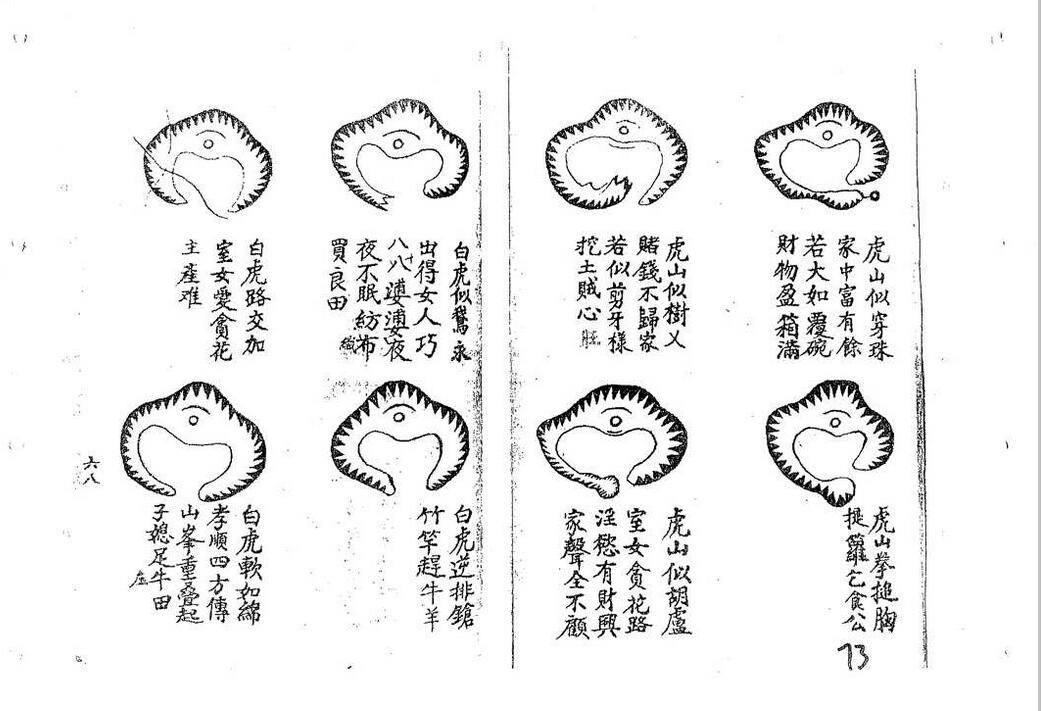 虎山似穿珠
家中富有餘
若大如覆碗
財物盈箱滿
虎山拳搥胸
提籮乞食公
虎山似樹乂
賭錢不歸家
若似剪牙樣
挖土賊心
虎山似胡盧
室女貪花路
淫慾有財興
家聲全不顧
白虎似鵞永
出得女人巧
八十八婆婆夜
夜不眠紡布
買良田
白虎逆排鎗
竹竿趕牛羊
白虎路交加
室女愛貪花
主產难
白虎軟如綿
孝順四方傳
山峯重疊起
子媳足牛田
六八
73